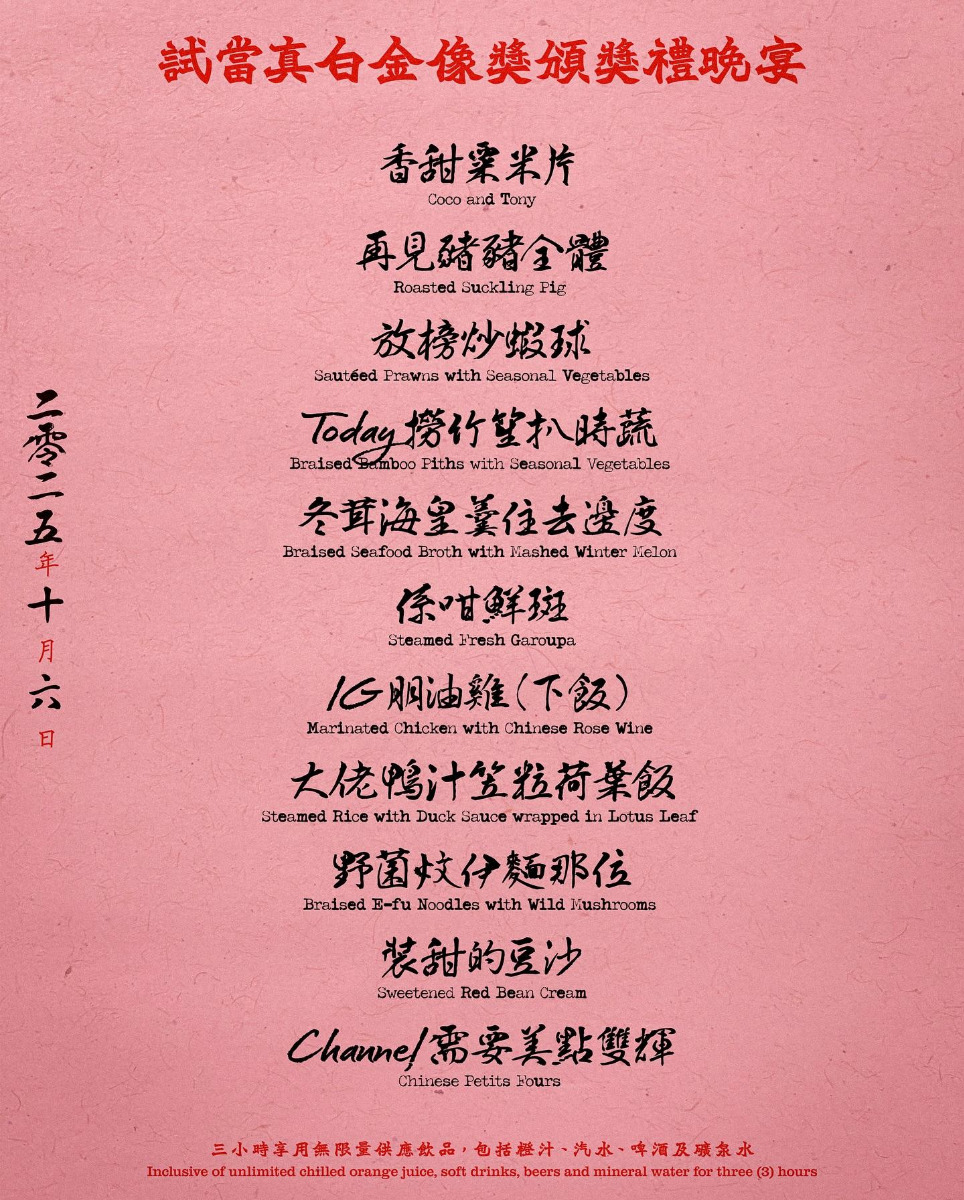 試當真白金像獎頒獎禮晚宴
香甜粟米片
Coco and Tony
再見豬豬全體
Roasted Suckling Pig
放榜炒蝦球
Sautéed Prawns with Seasonal Vegetables
Today撈竹笙扒時蔬
Braised Bamboo Piths with Seasonal Vegetables
冬茸海皇羹住去邊度
Braised Seafood Broth with Mashed Winter Melon
係咁鮮斑
Steamed Fresh Garoupa
IG明油雞(下飯)
Marinated Chicken with Chinese Rose Wine
大佬鴨汁笠粒荷葉飯
Steamed Rice with Duck Sauce wrapped in Lotus Leaf
野菌炆伊麵那位
Braised E-fu Noodles with Wild Mushrooms
裝甜的豆沙
Sweetened Red Bean Cream
Channel需要美點雙輝
Chinese Petits Fours
二零二五年十月六日
三小時享用無限量供應飲品，包括橙汁、汽水、啤酒及礦泉水
Inclusive of unlimited chilled orange juice, soft drinks, beers and mineral water for three (3) hours